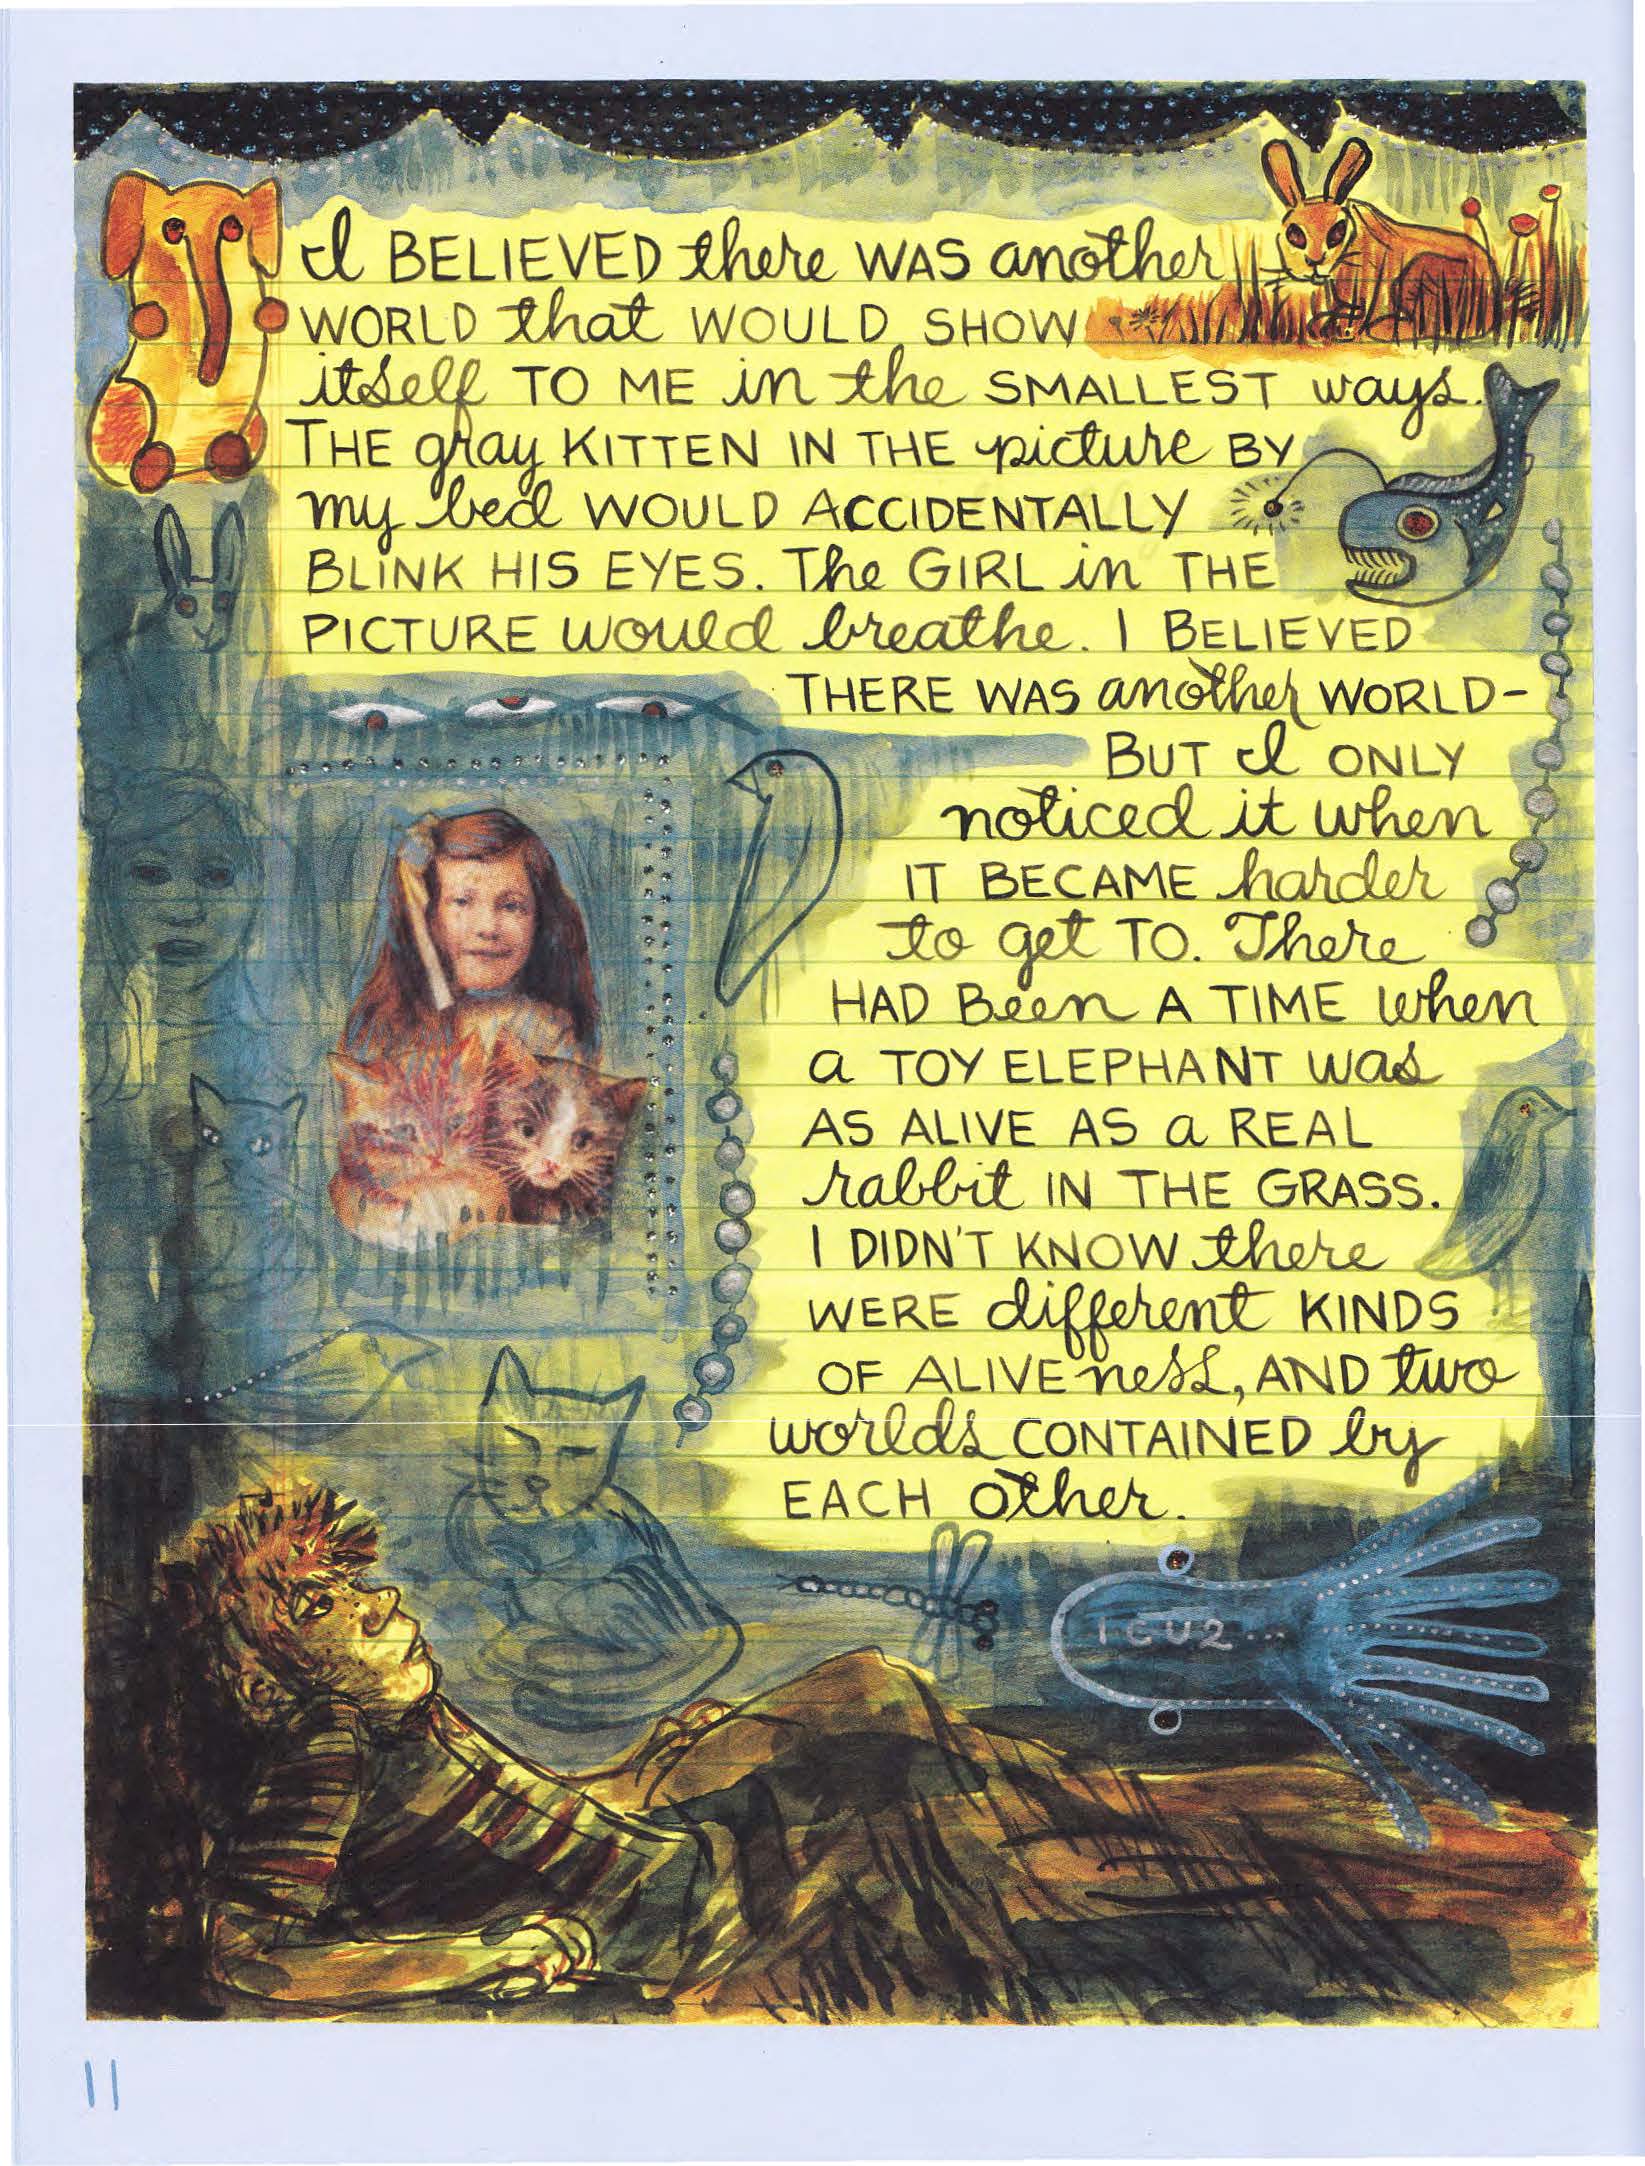 I BELIEVED there WAS another
WORLD that WOULD SHOW
itself TO ME in the SMALLEST ways.
THE gray KITTEN IN THE picture BY
my bed WOULD ACCIDENTALLY
BLINK HIS EYES. The GIRL in THE
PICTURE would breathe. I BELIEVED
THERE WAS another WORLD-
BUT I ONLY
noticed it when
IT BECAME harder
to get TO. There
HAD Been A TIME when
a TOY ELEPHANT was
AS ALIVE AS a REAL
rabbit IN THE GRASS.
I DIDN'T KNOW there
WERE different KINDS
OF ALIVEness, AND two
worlds CONTAINED by
EACH other.
ICU2...
11